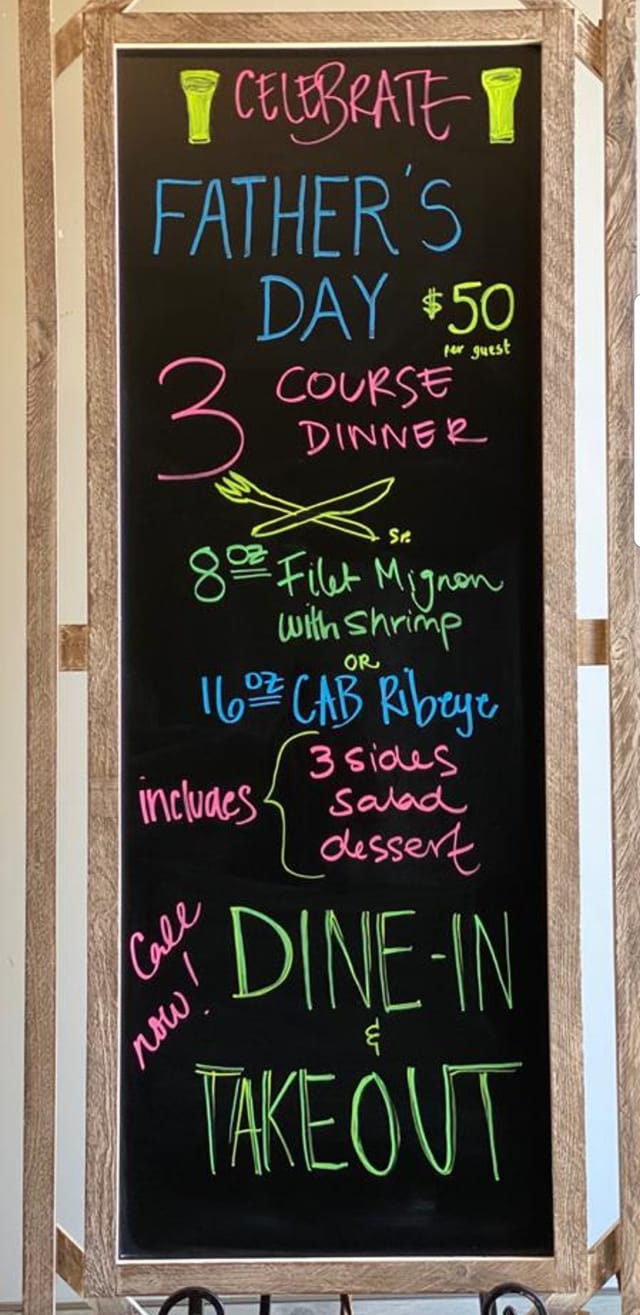 CELEBRATE
FATHER'S
DAY $50
per guest
3 COURSE
DINNER
8oz Filet Mignon
with Shrimp
OR
16oz CAB Ribeye
includes
3 sides
salad
dessert
Call
now!
DINE-IN
&
TAKEOUT